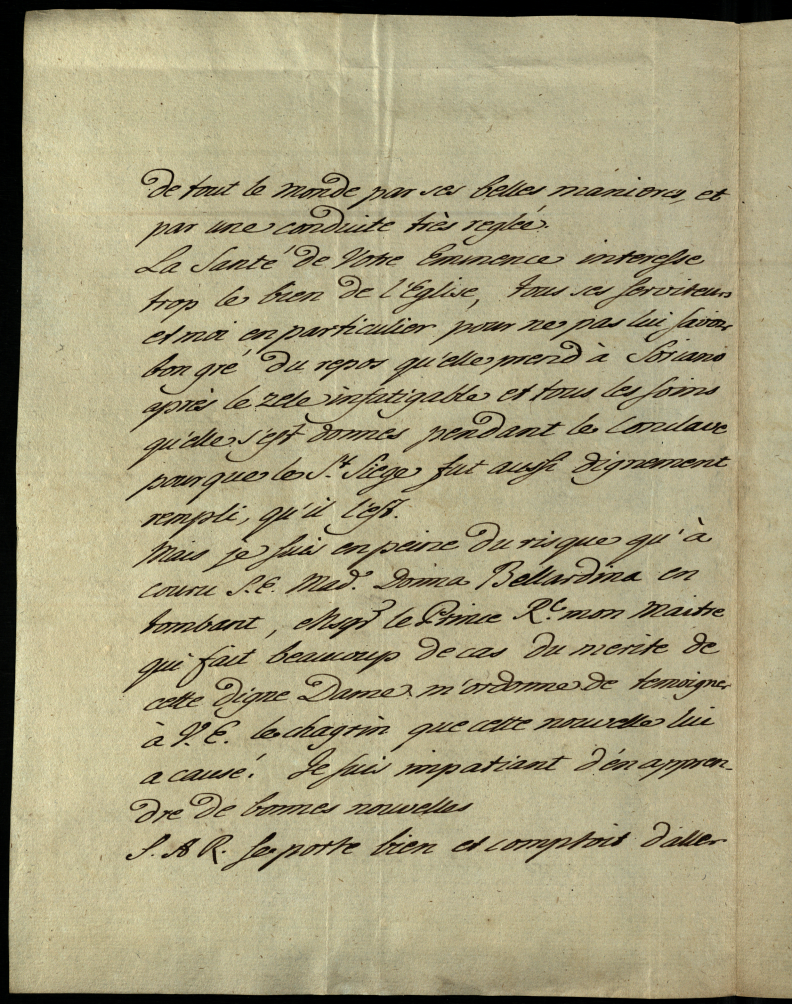 de tout le monde par ses belles manieres, et
par une conduite très reglée.
La Santé de Votre Eminence interesse
trop le bien de l'Eglise, tous ses serviteurs
et moi en particulier pour ne pas lui savoir
bon gré du repos qu'elle prend à Soriano
après le zele infatigable et tous les soins
qu'elle s'est donnés pendant le Conclave
pour que le S.t Siege fut aussi dignement
rempli, qu'il l'est.
Mais je suis en peine du risque qu'à
couru S. E. Mad.e Donna Bellardina en
tombant, Msgr le Prince R.l mon Maitre
qui fait beaucoup de cas du merite de
cette digne Dame m'ordonne de temoigner
à V. E. le chagrin que cette nouvelle lui
a causé. Je suis impatiant d'én appren-
dre de bonnes nouvelles
S. A R. se porte bien et comptoit d'aller